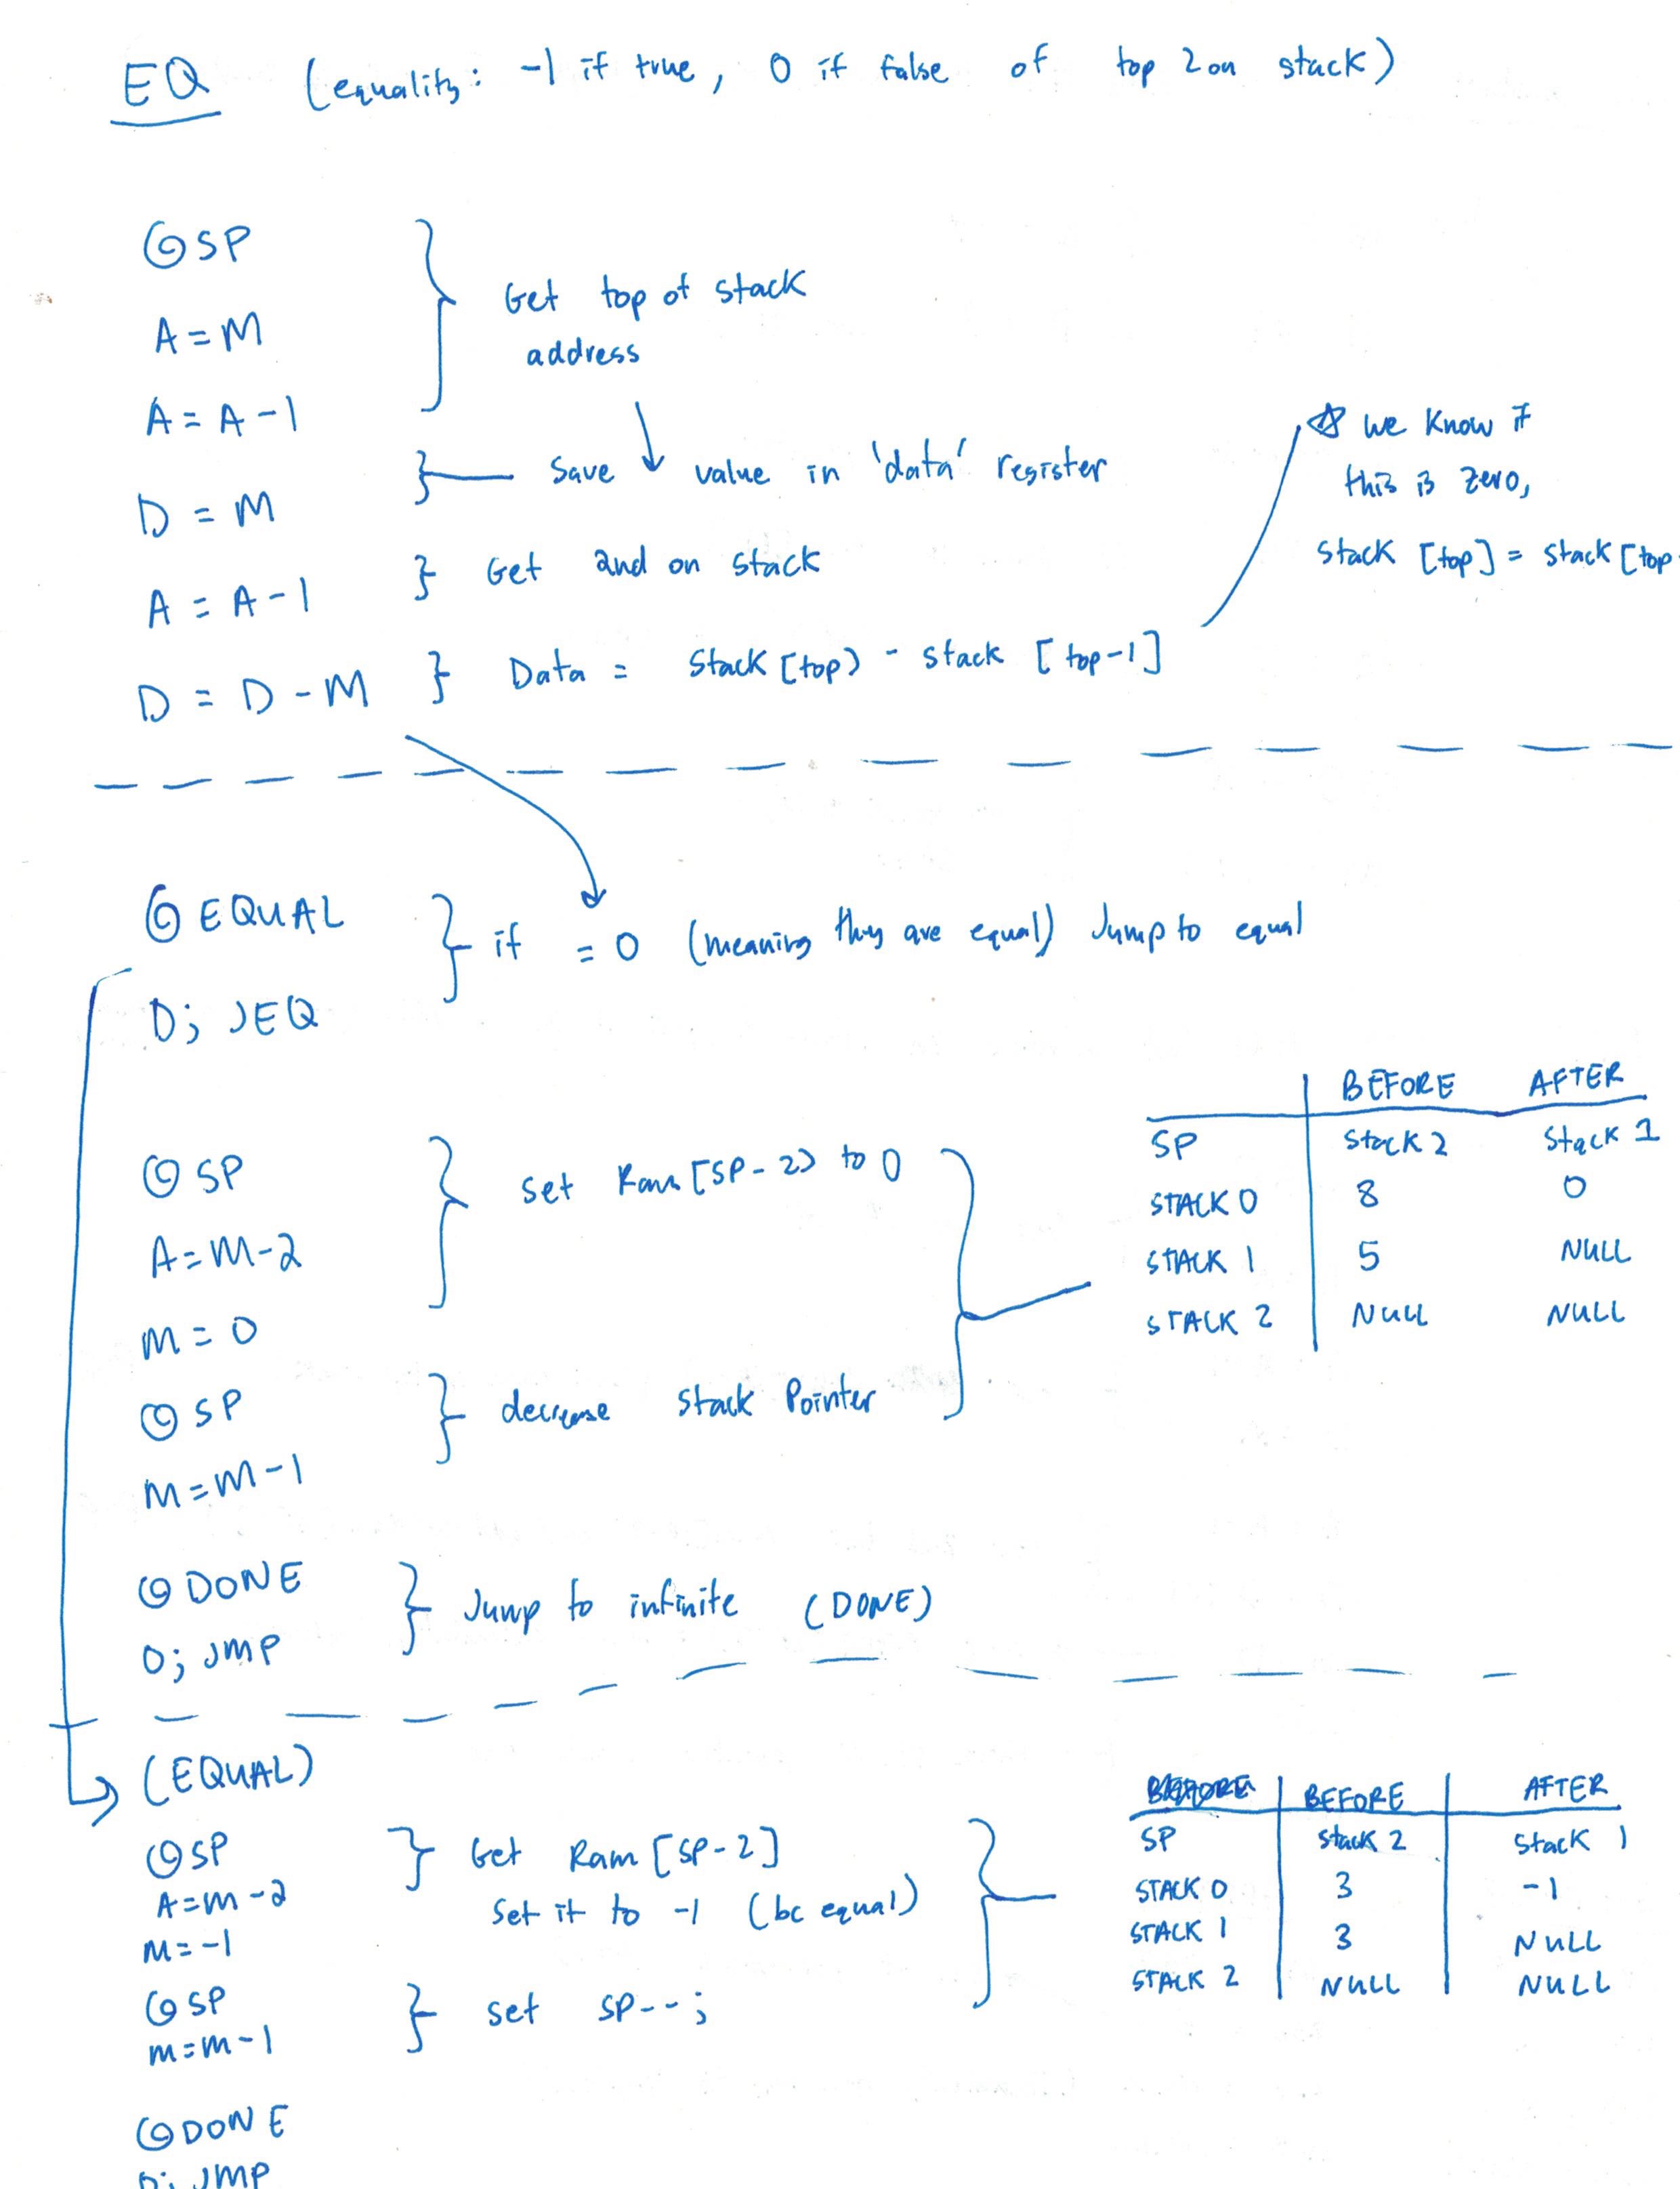 EQ (equality: -1 if true, 0 if false of top 2 on stack)
@SP
A=M
A=A-1
} Get top of stack
address
D=M
} Save ↓ value in 'data' register
A=A-1
} Get 2nd on stack
D=D-M } Data = Stack[top) - stack [top-1]
☆ we know if
this is zero,
stack [top] = stack [top
@ EQUAL
D; JEQ
} if = 0 (meaning they are equal) Jump to equal
@ SP
A=M-2
M=0
} set Ram[SP-2) to 0
@ SP
M=M-1
} decrease Stack Pointer
BEFORE AFTER
SP Stack 2 Stack 1
STACK 0 8 0
STACK 1 5 NULL
STACK 2 NULL NULL
@ DONE
0; JMP
} Jump to infinite (DONE)
(EQUAL)
@SP
A=M-2
M=-1
} Get Ram [SP-2]
Set it to -1 (bc equal)
@SP
M=M-1
} set SP--;
BEFORE AFTER
SP Stack 2 Stack 1
STACK 0 3 -1
STACK 1 3 NULL
STACK 2 NULL NULL
@DONE
0; JMP